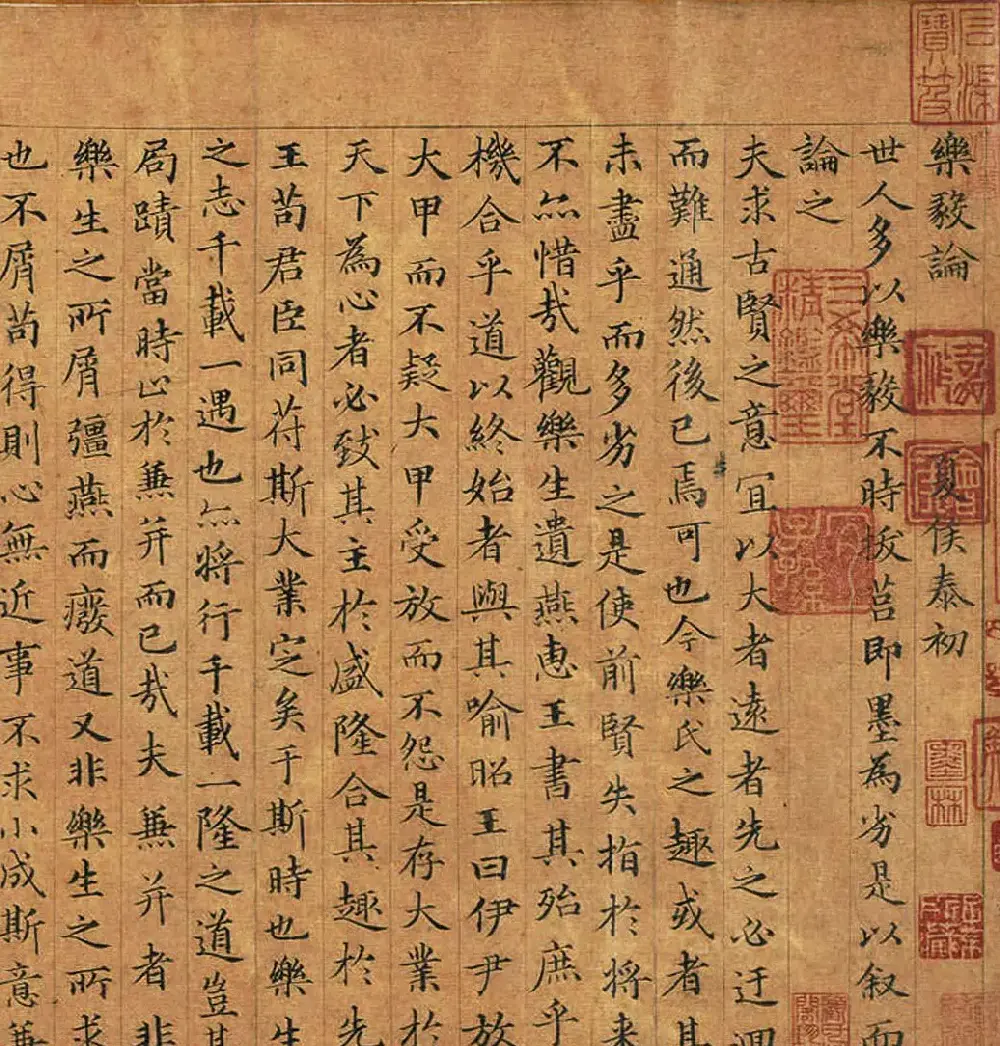 樂毅論 夏侯泰初
世人多以樂毅不時拔莒即墨為劣是以叙而
論之
夫求古賢之意冝以大者遠者先之必迂迴
而難通然後已焉可也今樂氏之趣或者其
未盡乎而多劣之是使前賢失指於将来
不亦惜哉觀樂生遺燕恵王書其殆庶乎
機合乎道以終始者與其喻昭王曰伊尹放
大甲而不疑大甲受放而不怨是存大業於
天下為心者必致其主於盛隆合其趣於先
王苟君臣同苻斯大業定矣于斯時也樂生
之志千載一遇也亦将行千載一隆之道豈其
局蹟當時止於兼并而已哉夫兼并者非
樂生之所屑彊燕而癈道又非樂生之所求
也不屑苟得則心無近事不求小成斯意兼
三希堂精鑑璽
宜子孫
墨林